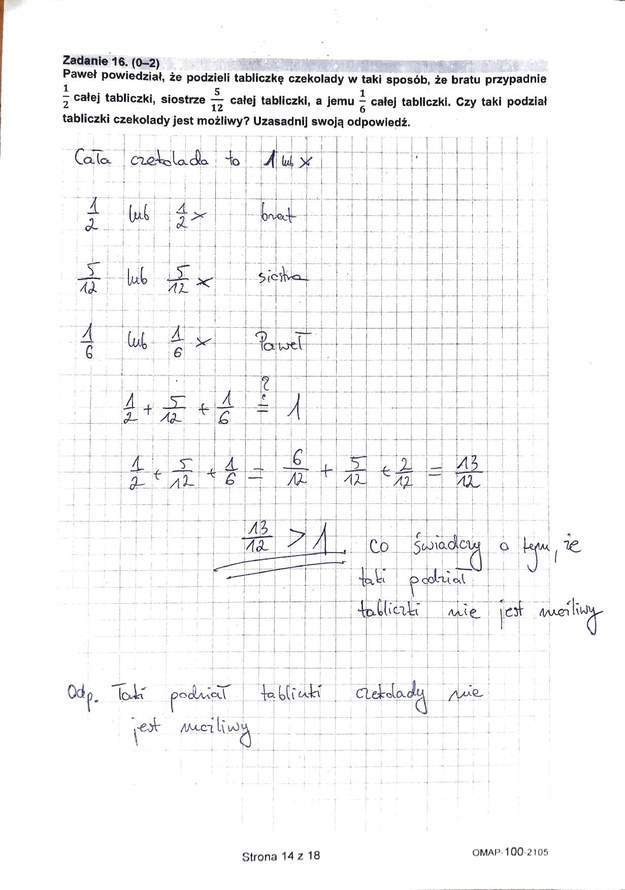 Zadanie 16. (0–2)
Paweł powiedział, że podzieli tabliczkę czekolady w taki sposób, że bratu przypadnie
1/2 całej tabliczki, siostrze 5/12 całej tabliczki, a jemu 1/6 całej tabliczki. Czy taki podział
tabliczki czekolady jest możliwy? Uzasadnij swoją odpowiedź.
Cała czekolada to 1 lub x
1/2 lub 1/2 x brat
5/12 lub 5/12 x siostra
1/6 lub 1/6 x Paweł
?
1/2 + 5/12 + 1/6 = 1
1/2 + 5/12 + 1/6 = 6/12 + 5/12 + 2/12 = 13/12
13/12 > 1 co świadczy o tym, że
taki podział
tabliczki nie jest możliwy
Odp. Taki podział tabliczki czekolady nie
jest możliwy
Strona 14 z 18
OMAP-100-2105